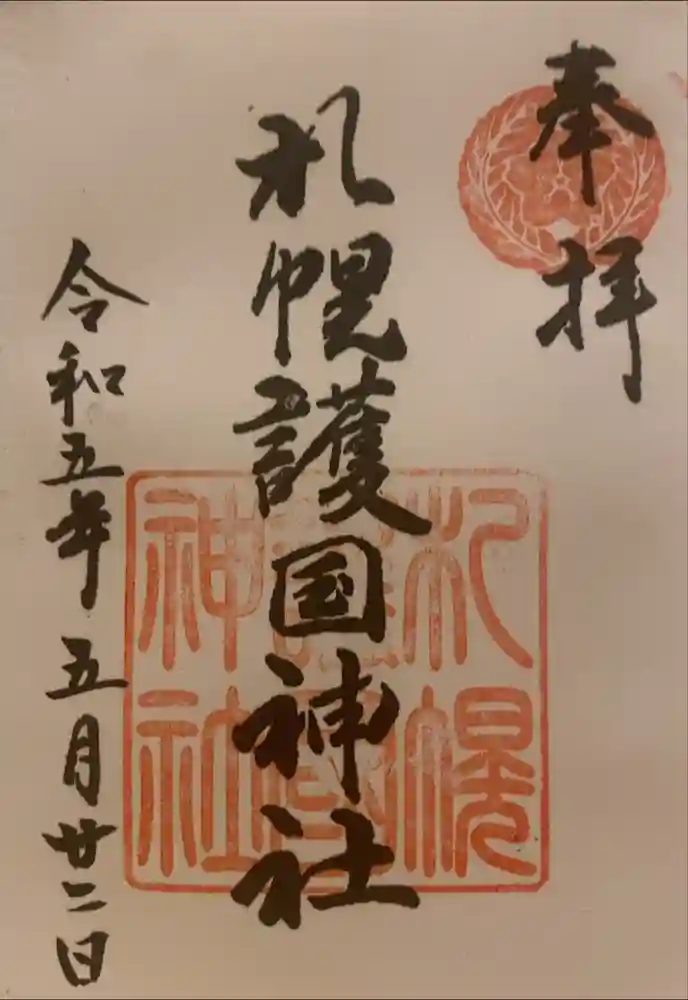 奉拝
札幌護国神社
令和五年五月廿二日
札幌
護國
神社